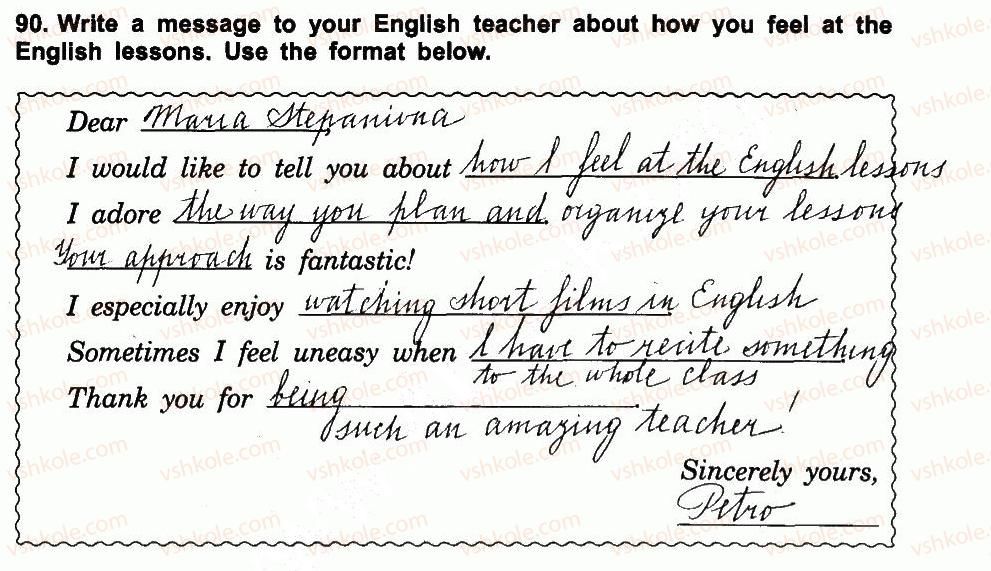 90. Write a message to your English teacher about how you feel at the
English lessons. Use the format below.
Dear Maria Stepanivna
I would like to tell you about how I feel at the English lessons
I adore the way you plan and organize your lessons
Your approach is fantastic!
I especially enjoy watching short films in English
Sometimes I feel uneasy when I have to recite something
to the whole class
Thank you for being
such an amazing teacher!
Sincerely yours,
Petro
vshkole.com